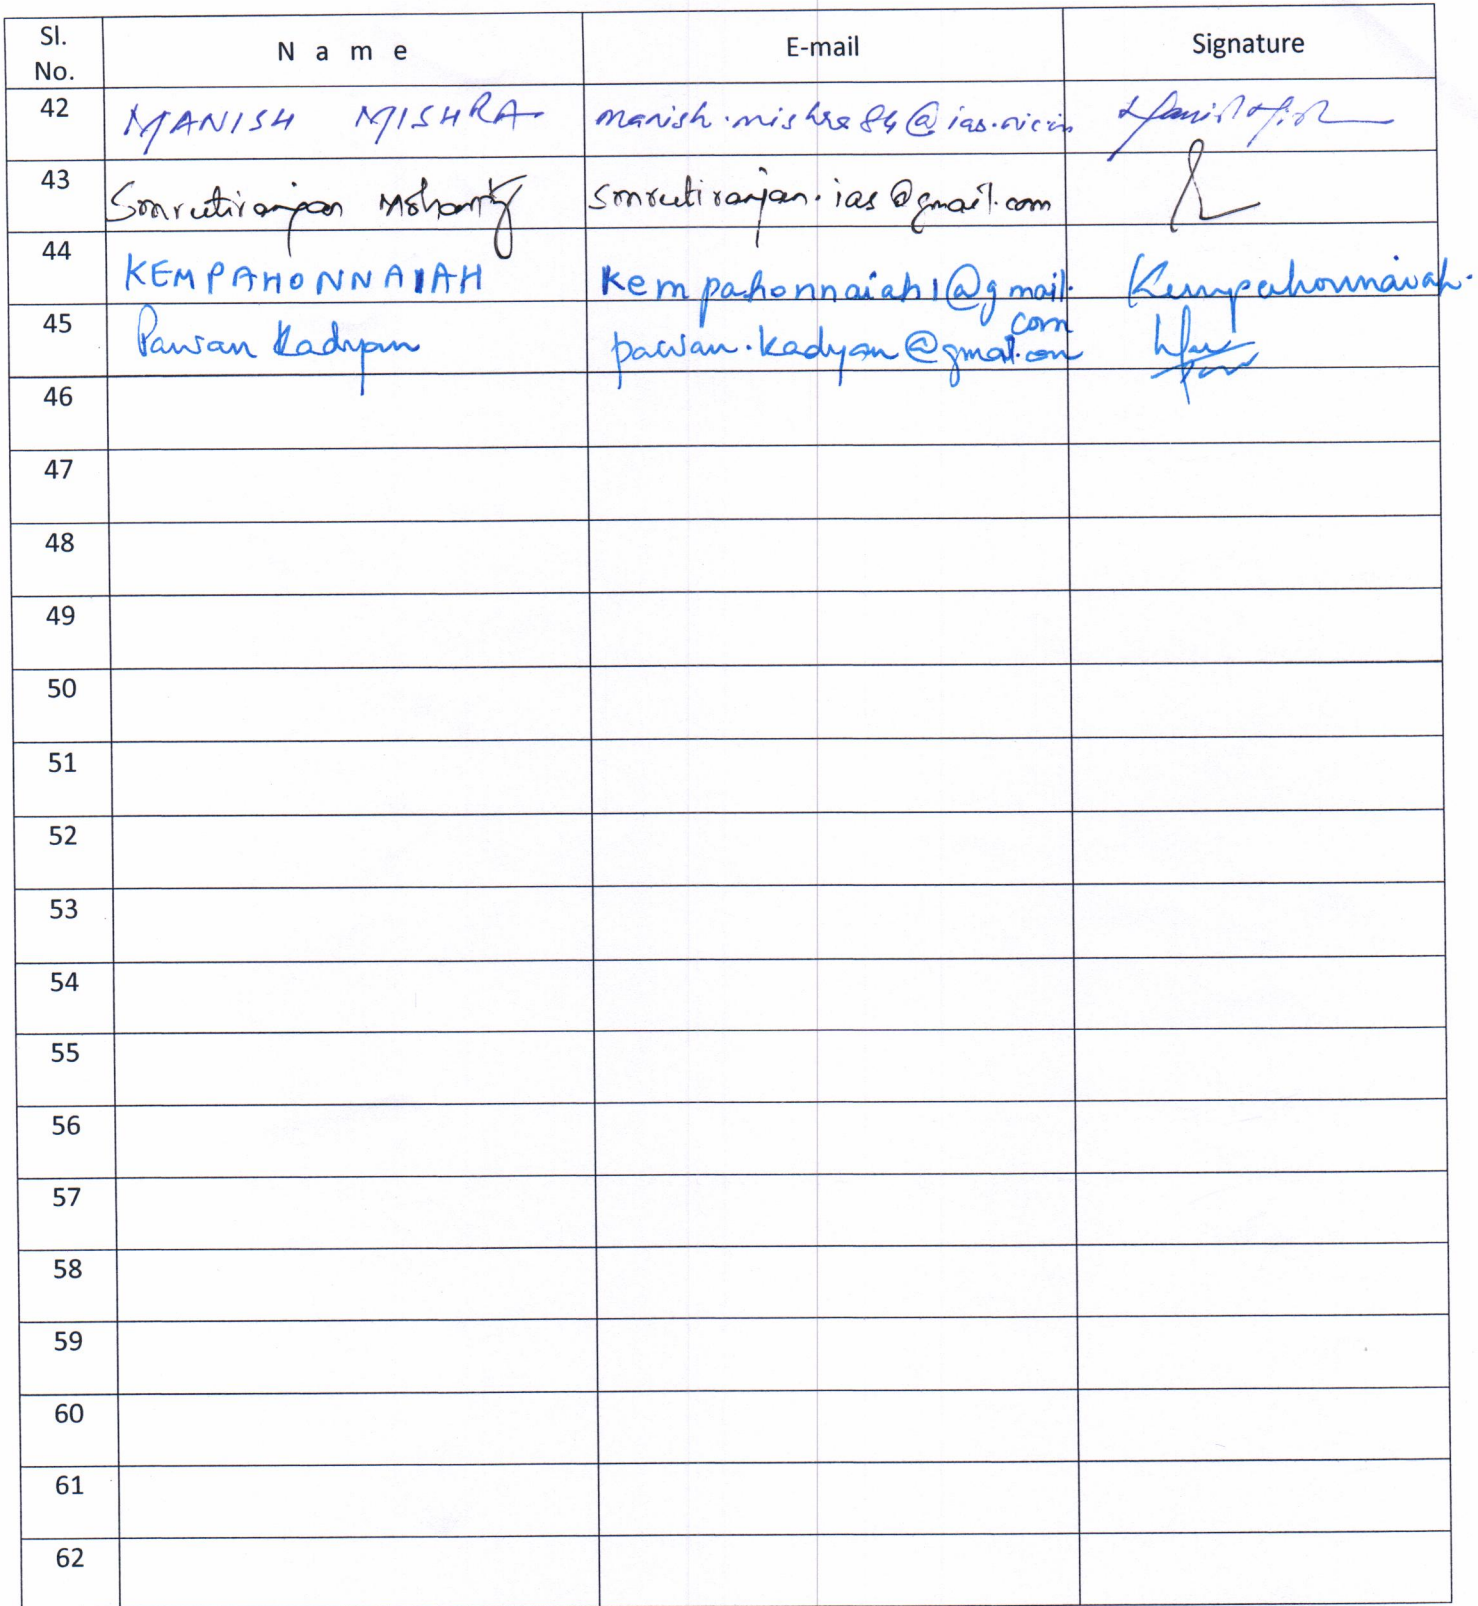 Sl. No. N a m e E-mail Signature
42 MANISH MISHRA manish.mishra84@ias.nic.in
43 Smrutiranjan Mohanty smrutiranjan.ias@gmail.com
44 KEMPAHONNAIAH kempahonnaiah1@gmail. Kempahonnaiah.
com
45 Pawan Kadyan pawan.kadyan@gmail.com
46
47
48
49
50
51
52
53
54
55
56
57
58
59
60
61
62